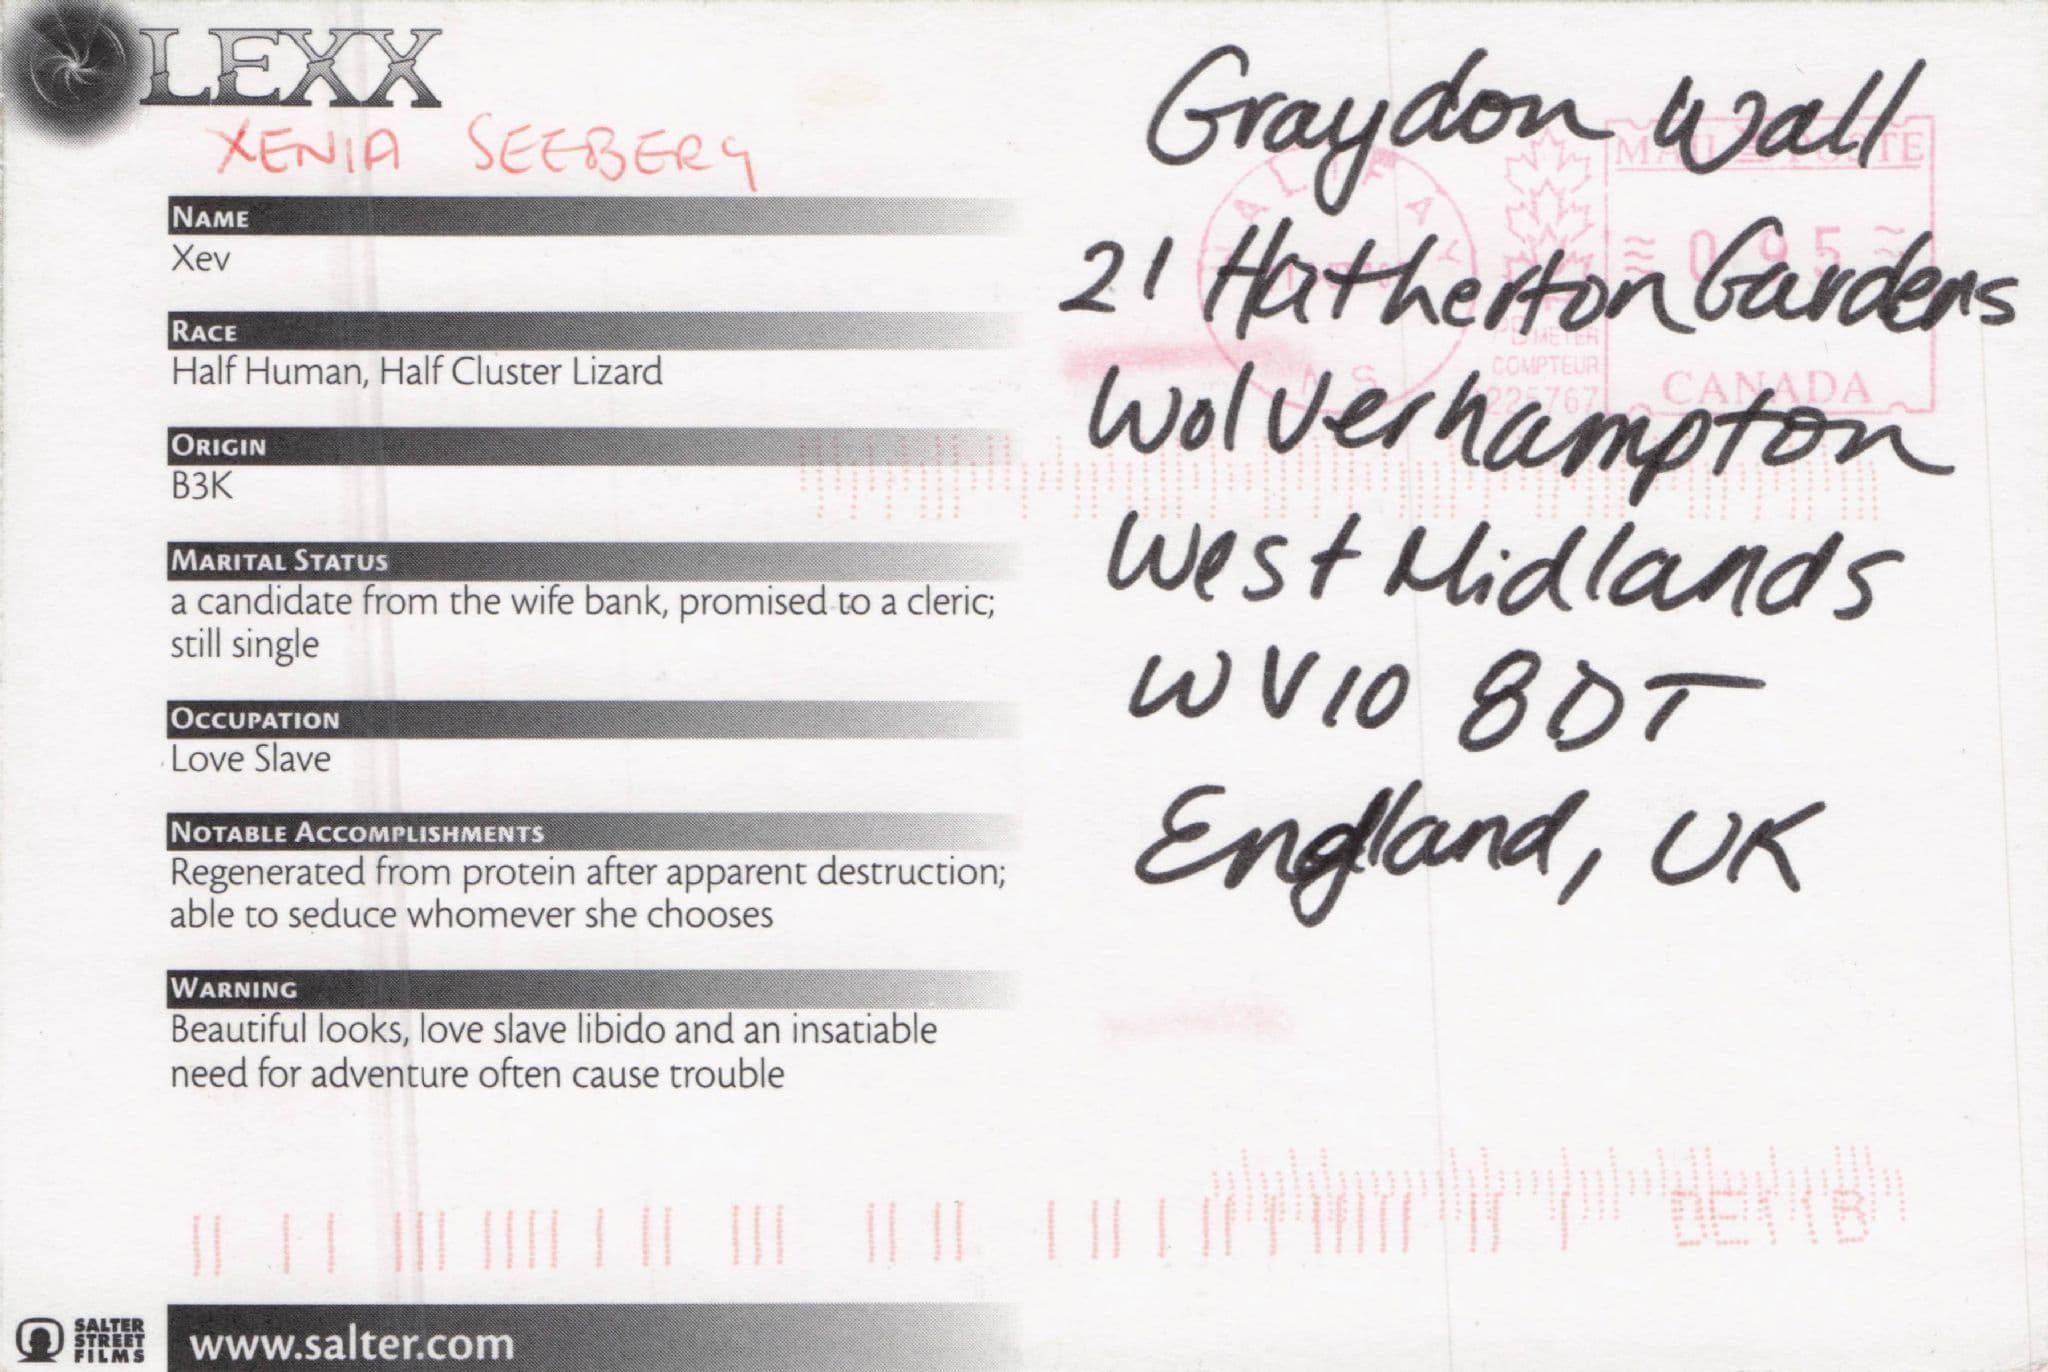 LEXX
XENIA SEEBERG
NAME
Xev
RACE
Half Human, Half Cluster Lizard
ORIGIN
B3K
MARITAL STATUS
a candidate from the wife bank, promised to a cleric;
still single
OCCUPATION
Love Slave
NOTABLE ACCOMPLISHMENTS
Regenerated from protein after apparent destruction;
able to seduce whomever she chooses
WARNING
Beautiful looks, love slave libido and an insatiable
need for adventure often cause trouble
SALTER
STREET
FILMS
www.salter.com
Graydon Wall
21 Hatherton Gardens
Wolverhampton
West Midlands
WV10 8DT
England, UK
HALIFAX
N.S.
MAIL POSTE
095
METER
COMPTEUR
225767
CANADA